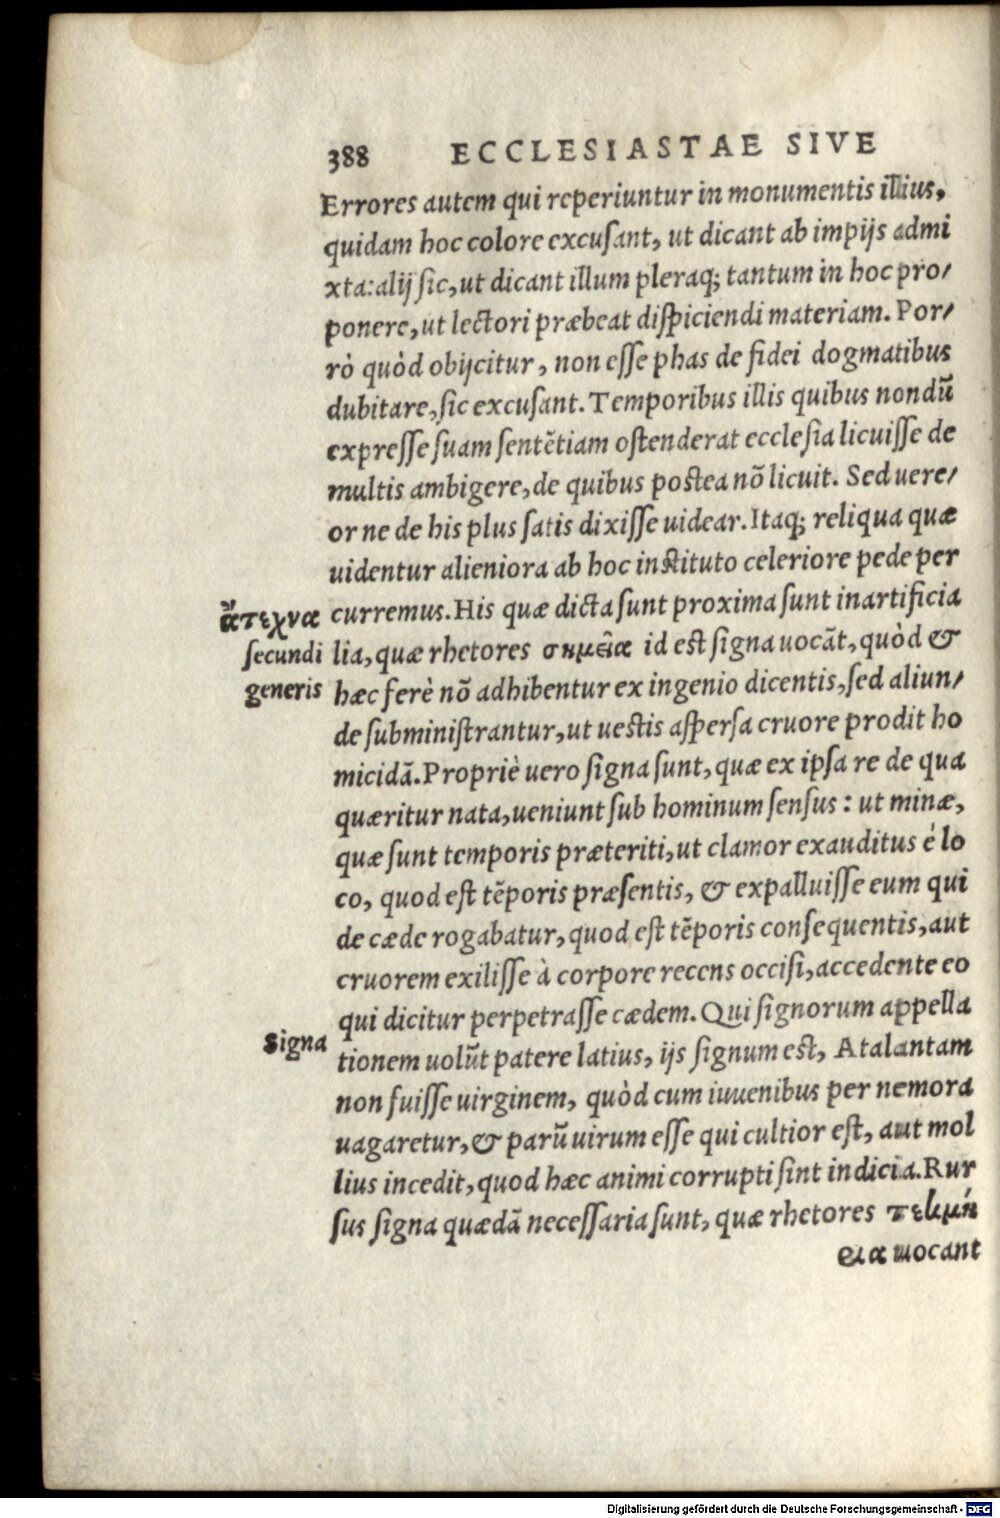 388 ECCLESIASTAE SIVE
Errores autem qui reperiuntur in monumentis illius,
quidam hoc colore excusant, ut dicant ab impijs admi
xta: alij sic, ut dicant illum pleraq; tantum in hoc pro/
ponere, ut lectori præbeat dispiciendi materiam. Por/
rò quòd obijcitur, non esse phas de fidei dogmatibus
dubitare, sic excusant. Temporibus illis quibus nondũ
expresse suam sentẽtiam ostenderat ecclesia licuisse de
multis ambigere, de quibus postea nõ licuit. Sed uere/
or ne de his plus satis dixisse uidear. Itaq; reliqua quæ
uidentur alieniora ab hoc instituto celeriore pede per
ἄτεχνα
secundi
generis
curremus. His quæ dicta sunt proxima sunt inartificia
lia, quæ rhetores σημεῖα id est signa uocãt, quòd &
hæc ferè nõ adhibentur ex ingenio dicentis, sed aliun/
de subministrantur, ut uestis aspersa cruore prodit ho
micidã. Propriè uero signa sunt, quæ ex ipsa re de qua
quæritur nata, ueniunt sub hominum sensus: ut minæ,
quæ sunt temporis præteriti, ut clamor exauditus è lo
co, quod est tẽporis præsentis, & expalluisse eum qui
de cæde rogabatur, quod est tẽporis consequentis, aut
cruorem exilisse à corpore recens occisi, accedente eo
qui dicitur perpetrasse cædem. Qui signorum appella
Signa
tionem uolũt patere latius, ijs signum est, Atalantam
non fuisse uirginem, quòd cum iuuenibus per nemora
uagaretur, & parũ uirum esse qui cultior est, aut mol
lius incedit, quod hæc animi corrupti sint indicia. Rur
sus signa quædã necessaria sunt, quæ rhetores τεκμή
ρια uocant
Digitalisierung gefördert durch die Deutsche Forschungsgemeinschaft - DFG